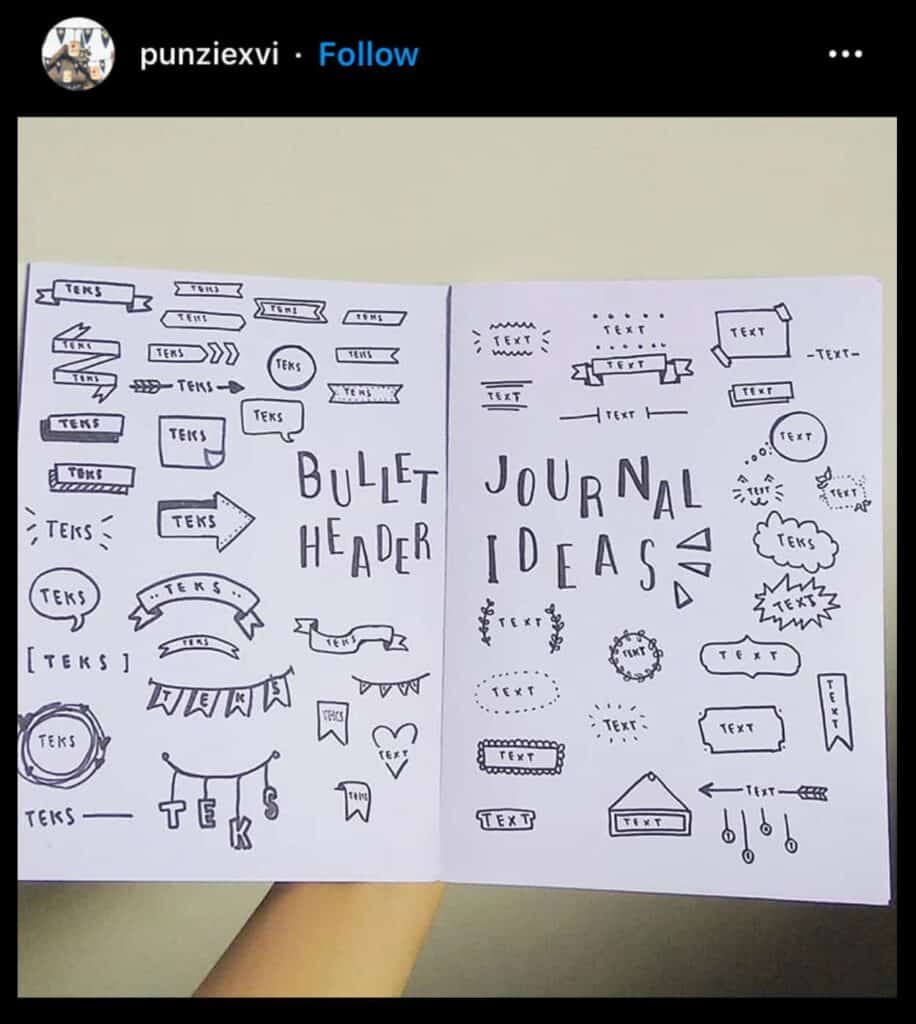 punziexvi · Follow
TEKS
TEKS
TEKS
TEKS
TEKS
TEKS
TEKS
TEKS
TEKS
TEKS
TEKS
TEKS
TEKS
TEKS
TEKS
TEKS
TEKS
TEKS
BULLET
HEADER
TEKS
TEKS
TEKS
TEKS
[TEKS]
TEKS
TEKS
TEKS
TEXT
TEKS
TEKS
TEKS
TEXT
TEXT
TEXT
-TEXT-
TEXT
TEXT
TEXT
TEXT
TEXT
JOURNAL
IDEAS
TEXT
TEXT
TEKS
TEXT
TEXT
TEXT
TEXT
TEXT
TEXT
TEXT
TEXT
TEXT
TEXT
TEXT
TEXT